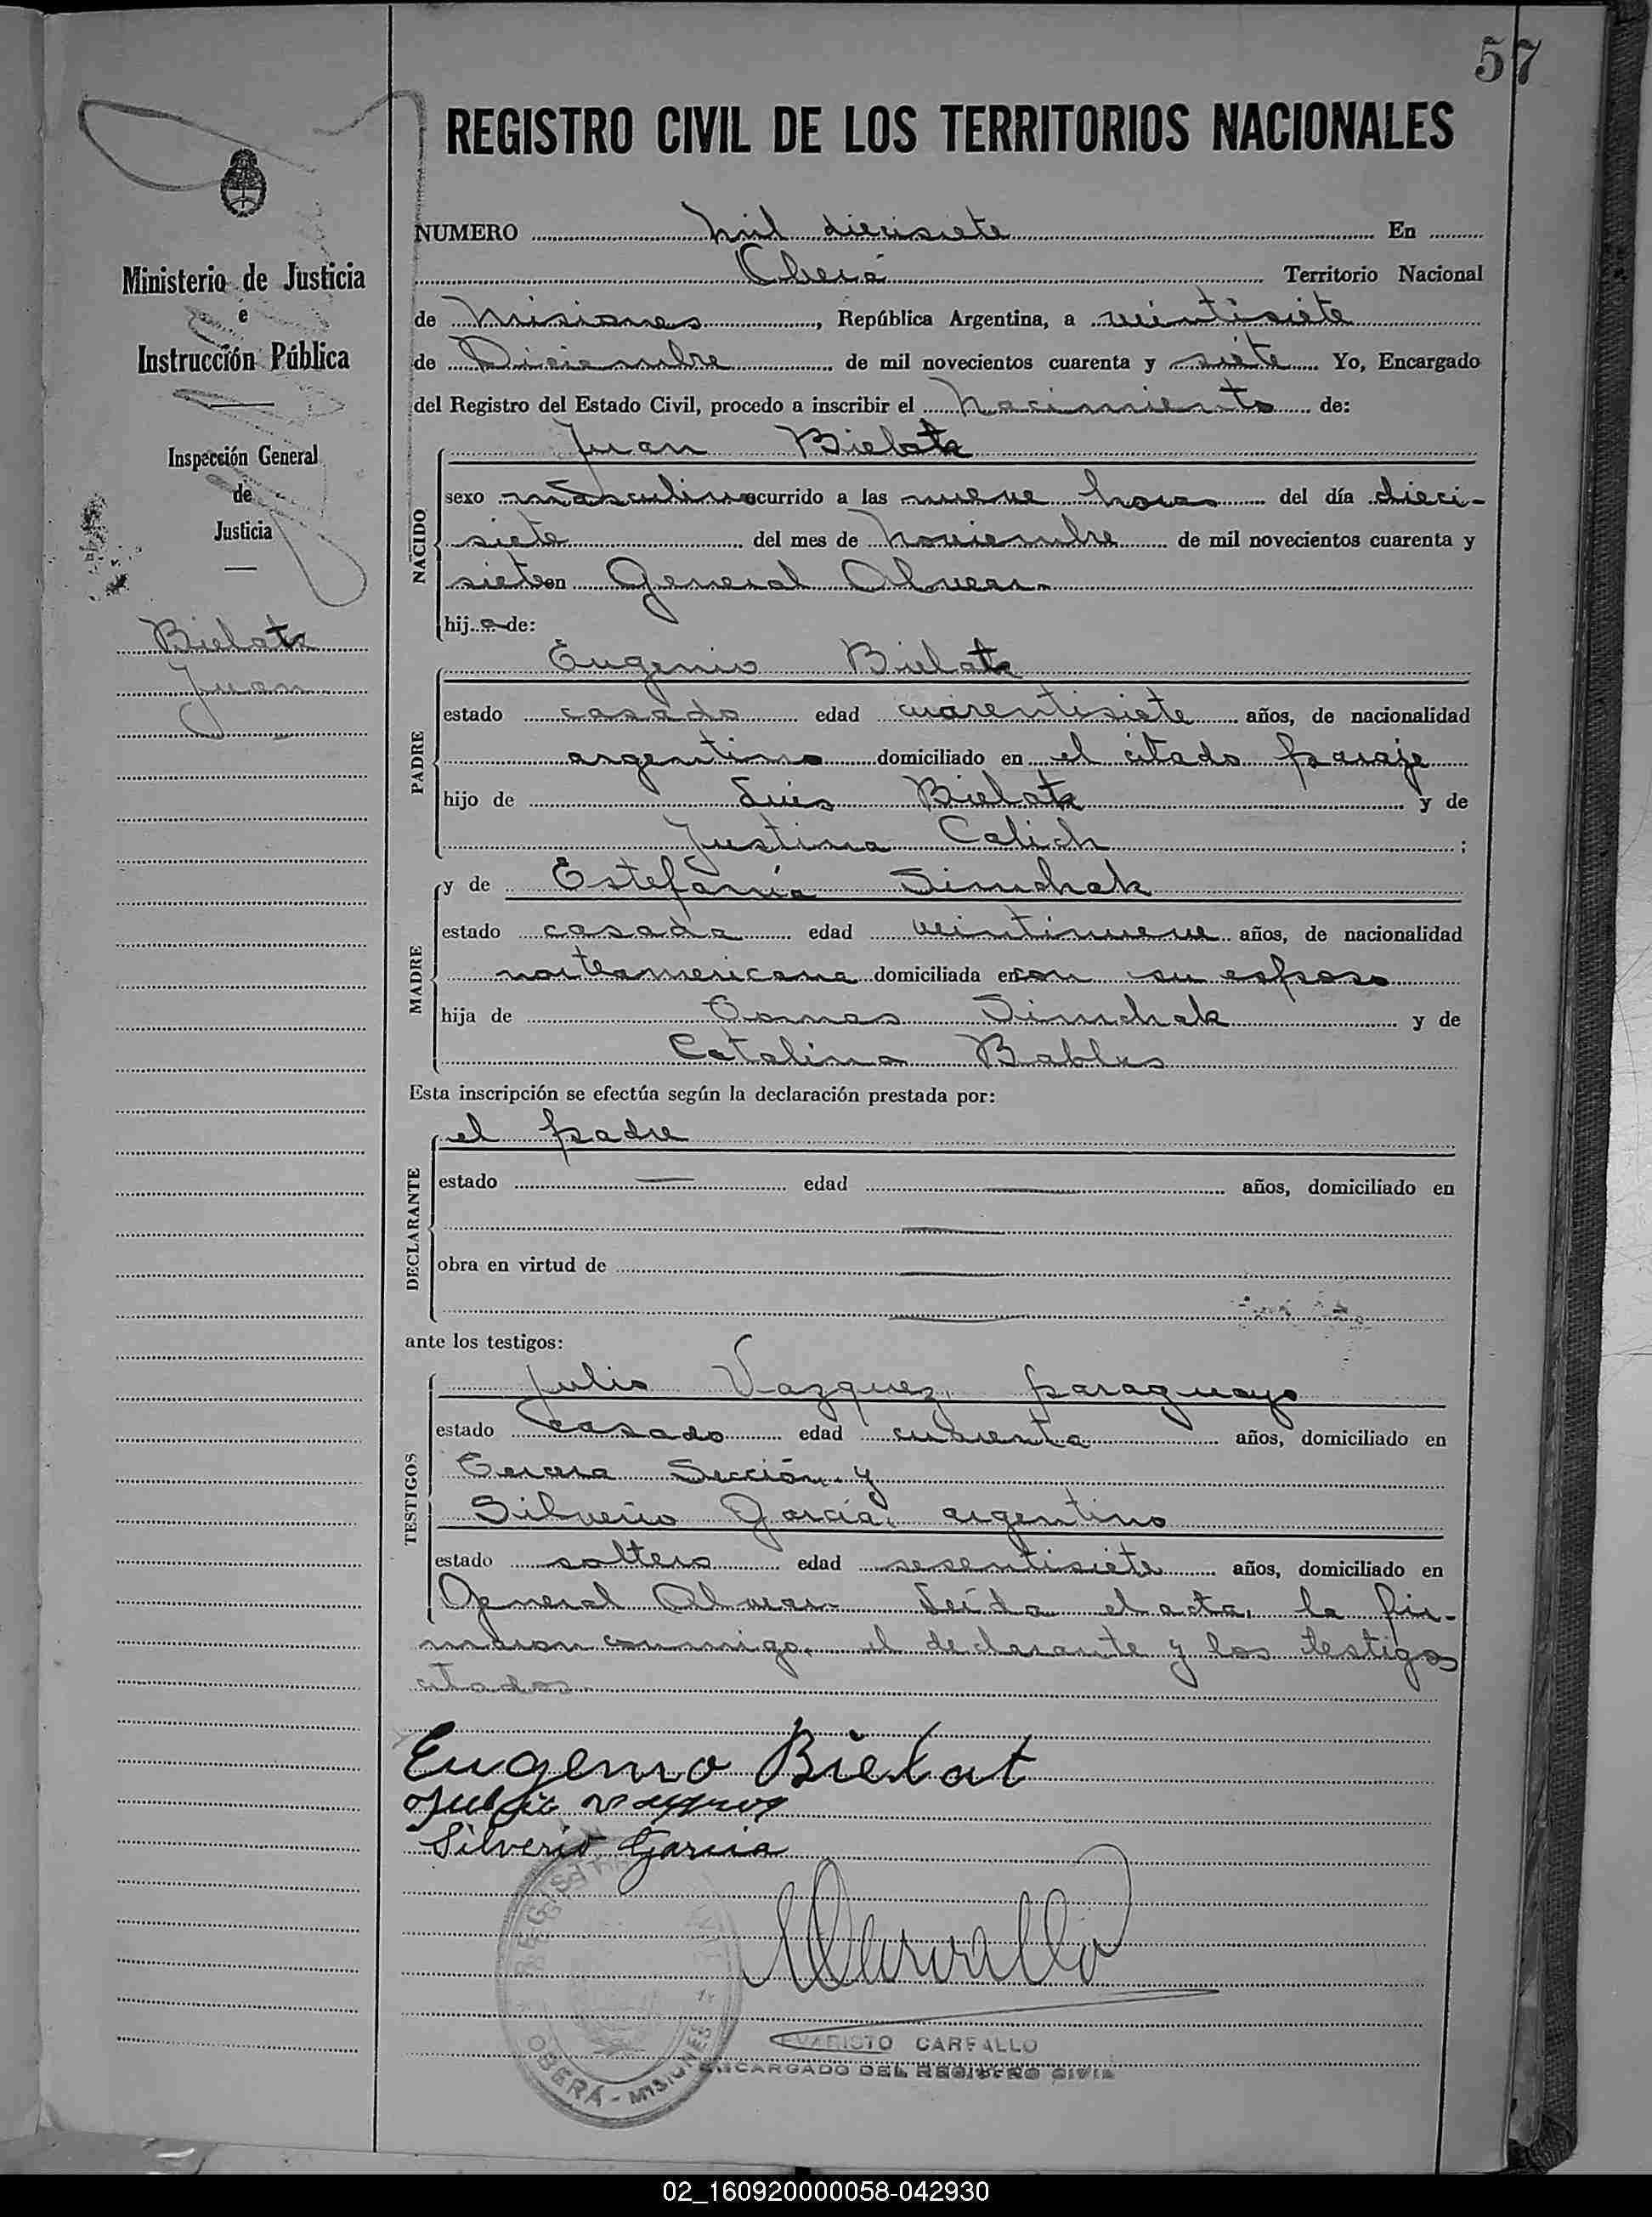 57
REGISTRO CIVIL DE LOS TERRITORIOS NACIONALES
Ministerio de Justicia
e
Instrucción Pública
Inspección General
de
Justicia
Bielat
Juan
NUMERO mil diecisiete En
Oberá Territorio Nacional
de Misiones, República Argentina, a veintisiete
de Diciembre de mil novecientos cuarenta y siete Yo, Encargado
del Registro del Estado Civil, procedo a inscribir el nacimiento de:
NACIDO
Juan Bielat
sexo masculino ocurrido a las nueve horas del día dieci-
siete del mes de noviembre de mil novecientos cuarenta y
siete en General Alvear.
hijo de:
PADRE
Eugenio Bielat
estado casado edad cuarentisiete años, de nacionalidad
argentino domiciliado en el citado paraje
hijo de Luis Bielat y de
Justina Calich ;
MADRE
y de Estefanía Simchak
estado casada edad veintinueve años, de nacionalidad
norteamericana domiciliada en con su esposo
hija de Tomas Simchak y de
Catalina Bablus
Esta inscripción se efectúa según la declaración prestada por:
DECLARANTE
el padre
estado — edad — años, domiciliado en
—
obra en virtud de —
—
ante los testigos:
TESTIGOS
Julio Vazquez, paraguayo
estado casado edad cuarenta años, domiciliado en
Tercera Sección y
Silverio García, argentino
estado soltero edad sesentisiete años, domiciliado en
General Alvear. Leída el acta, la fir-
maron conmigo, el declarante y los testigos
citados.
Eugenio Bielat
Silverio Garcia
OBERÁ - MISIONES
EVARISTO CARVALLO
ENCARGADO DEL REGISTRO CIVIL
02_160920000058-042930